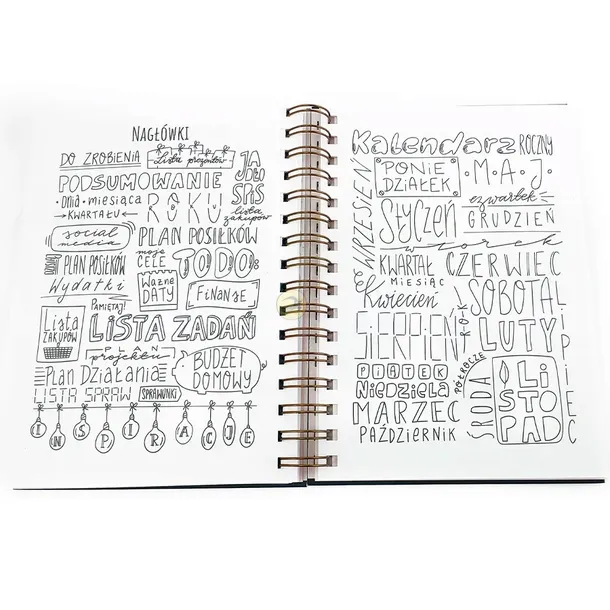 NAGŁÓWKI
DO ZROBIENIA
Lista prezentów
JADŁOSPIS
PODSUMOWANIE
• DNIA • miesiąca
KWARTAŁU
ROKU
lista zakupów
social media
PLAN POSIŁKÓW
PLAN POSIŁKÓW
moje CELE
TO DO:
Wydatki
WAŻNE DATY
FINANSE
Lista ZAKUPÓW
PAMIĘTAJ!
LISTA ZADAŃ
PLAN
projektu
BUDŻET DOMOWY
Plan Działania
LISTA SPRAW
SPRAWUNKI
INSPIRACJE
Kalendarz ROCZNY
WRZESIEŃ
PONIEDZIAŁEK
• M • A • J •
czwartek
Styczeń
GRUDZIEŃ
wtorek
KWARTAŁ
MIESIĄC
CZERWIEC
Kwiecień
SOBOTA
ROK
SIERPIEŃ
LUTY
PIĄTEK
PÓŁROCZE
Niedziela
MARZEC
ŚRODA
LISTOPAD
PAŹDZIERNIK